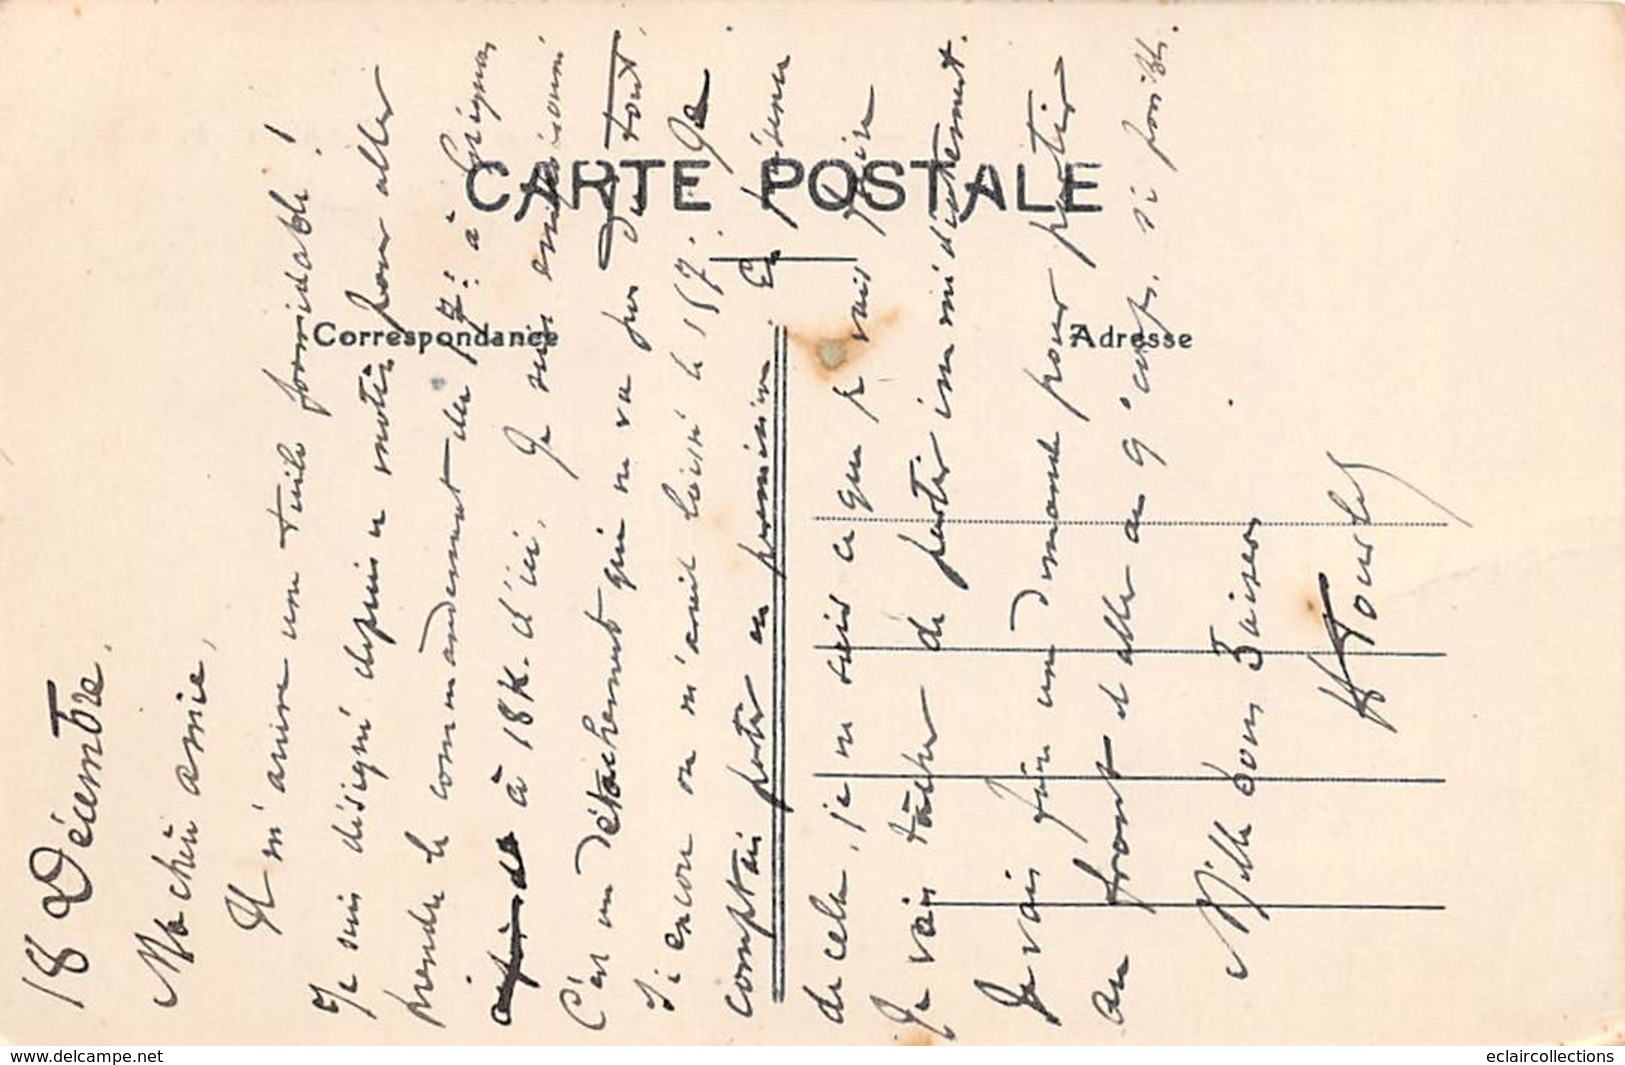 CARTE POSTALE
Correspondance
Adresse
18 Décembre.
Ma chère amie,
Il m'arrive une tuile formidable!
Je suis désigné depuis ce matin pour aller
prendre le commandement du à
à 18K. d'ici. Je suis
C'est un détachement qui ne va pas du tout,
Si encore on m'avait laissé le 157. Je
comptais partir en permission. En présence
de cela, je ne sais ce que je vais faire
Je vais tâcher de partir immédiatement.
Je vais faire une demande pour partir
au front et aller au 9e corps. si possible.
Mille bons Baisers
www.delcampe.net
eclaircollections